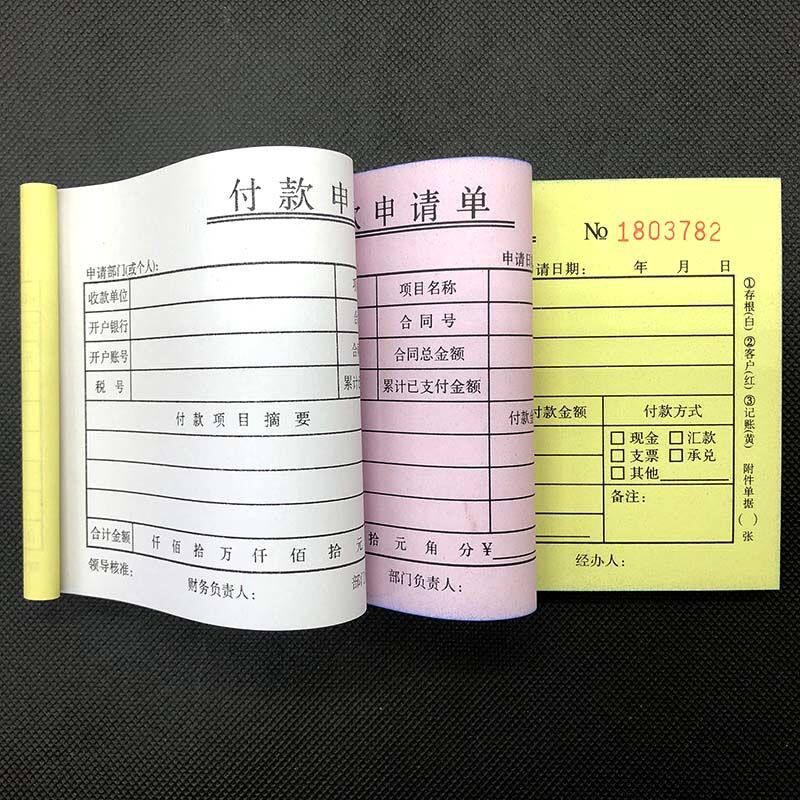 付款申
申请部门(或个人):
收款单位
开户银行
开户账号
税号 累计已
付款项目摘要
合计金额 仟佰拾万仟佰拾元
领导核准: 财务负责人: 部门
申请单
申请日
项目名称
合同号
合同总金额
累计已支付金额
付款金
拾元角分¥
部门负责人:
№ 1803782
请日期: 年 月 日
付款金额 付款方式
□现金 □汇款
□支票 □承兑
□其他
备注:
经办人:
①存根(白) ②客户(红) ③记账(黄) 附件单据( )张